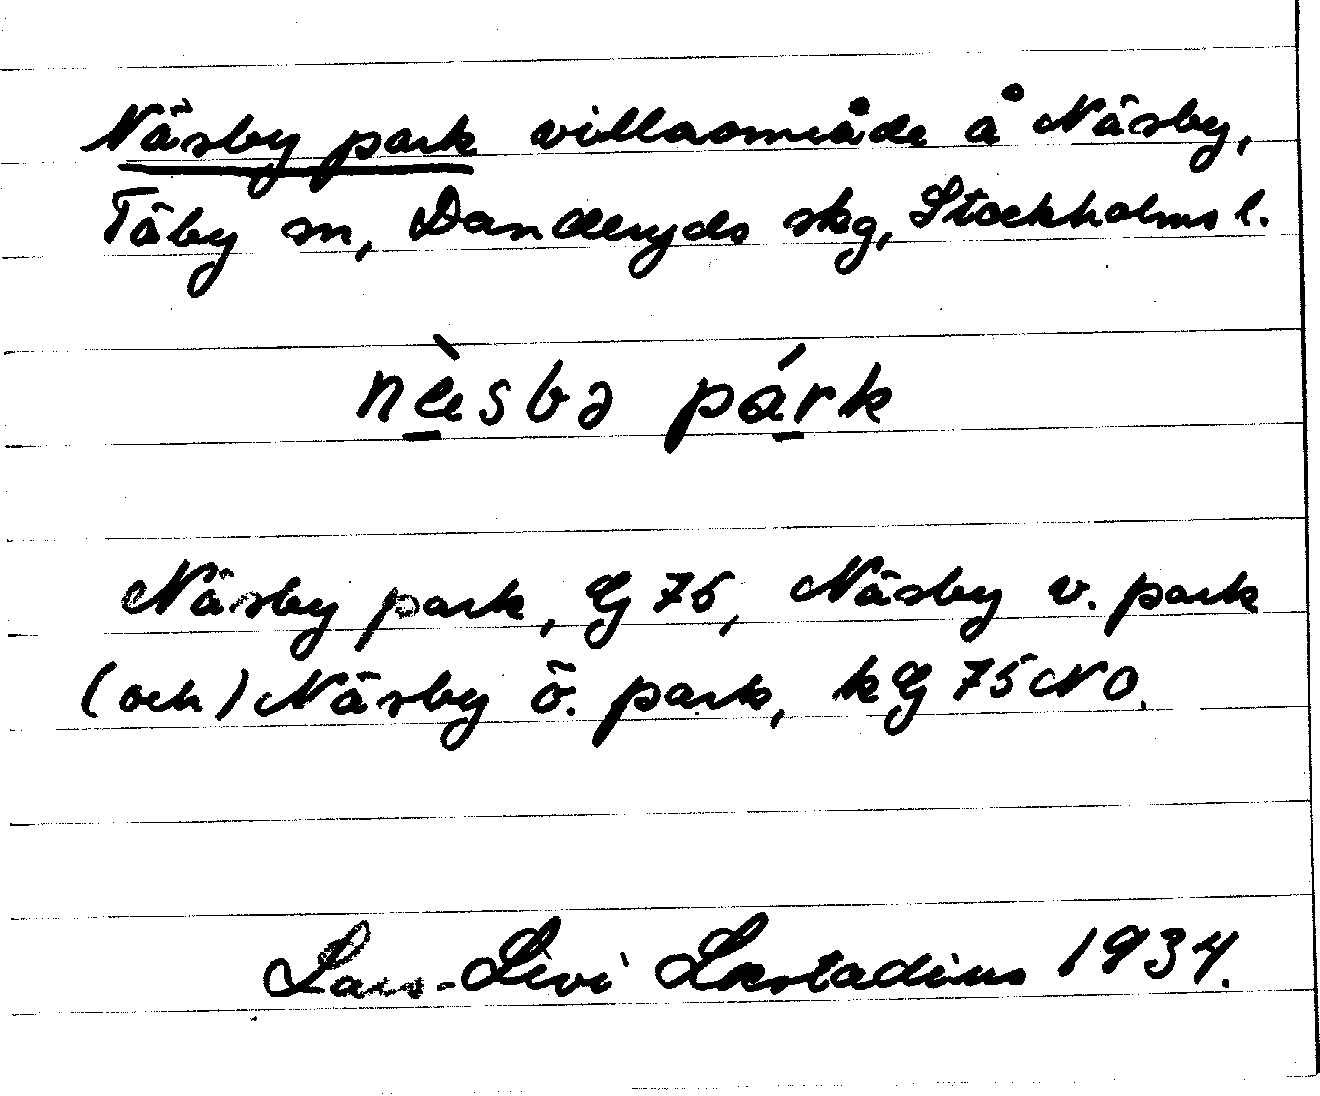 Näsby park villaområde å Näsby,
Täby sn, Danderyds skg, Stockholms l.
næ̀sbə párk
Näsby park, G 75, Näsby v. park
(och) Näsby ö. park, kG 75 NO.
Lars-Levi Læstadius 1934.